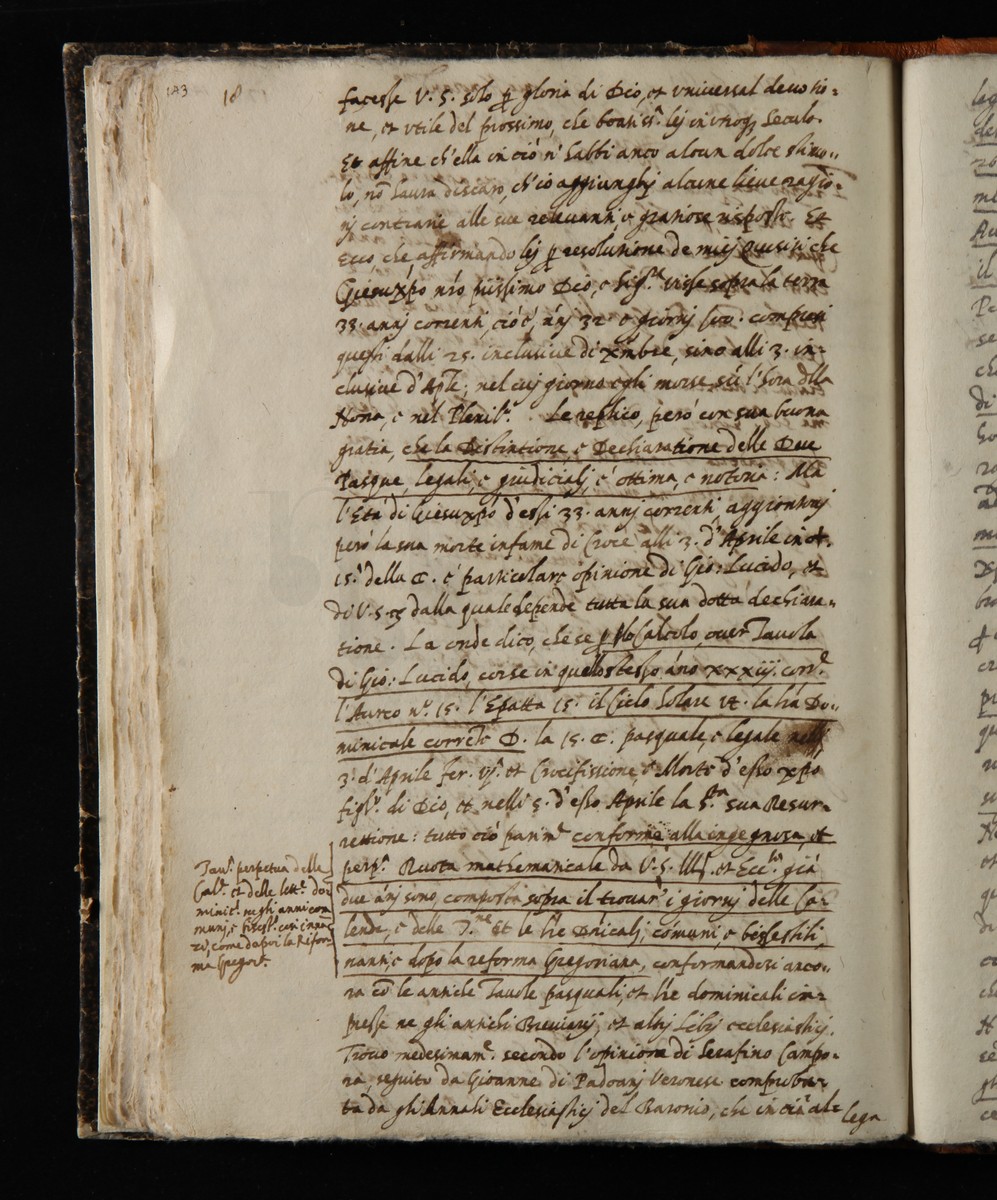 183 18
facesse V. S. solo p gloria di Dio, et universal devotio-
ne, et utile del prossimo, che
Et affine ch'ella in ciò n' habbi anco alcun dolce stimo-
lo, nō haurà discaro, ch'io aggiunghi alcune lieve ragio-
nj contrarie alle sue relevanti e gratiose risposte. Et
Ecco, che affirmando lej p resolutione de miej quesiti che
Giesuxp̄o nr̄o piissimo Dio, e Sigr. visse sopra la terra
33. annj correnti, cioè, ānj 32. e giornj compresi
questi dalli 25. inclusive di Xmbre, sino alli 3. in-
clusive d'Aple; nel cuj giorno egli morse sù l'hora dlla
Nona, e nel Plenilo. Le replico, però con sua buona
gratia, che la Distintione, e Dechiaratione delle Due
Pasque, legali, e giudicialj, è ottima, e notoria: Ma
l'Età di Giesuxp̄o d'essi 33. annj correnti, aggiontovj
però la sua morte infame di Croce alli 3. d'Aprile
15. della C. è particolare opinione di Gio: Lucido, et
di V. S. dalla quale depende tutta la sua dotta dechiara-
tione. La onde dico, che se p lo Calcolo, over Tavola
di Gio: Lucido, corse in quello stesso āno xxxiij. corre.
l'Aureo no. 15. l'Epatta 15. il Ciclo Solare la lr̄a Do-
minicale corrēte D. la 15. C. pasquale, e legale nelli
3. d'Aprile fer. vj. et Crocifissione, e Morte d'esso xp̄o
figlo. di Dio, et nelli 5. d'esso Aprile la sua Resur-
rettione: tutto ciò parimte. conforme alla ingegnosa, et
perpa. Ruota mathematicale da V. S. Ill. et Ecc. già
due ānj sono, composta sopra il trovar' i giornj delle Ca-
lende, e delle Et le lr̄e Dn̄icalj, comuni, e bissestili,
nanti, e dopo la reforma Gregoriana, conformandosi anco-
ra cō le antiche Tavole pasquali, et lr̄e dominicali im-
presse ne gli antichi Breviarij, et altrj Librj ecclesiasticj.
Trovo medesimame. secondo l'opinione di Serafino Campo-
ra, seguito da Gioanne di Padoanj Veronese comproba-
ta da gli Annali Ecclesiasticj del Baronio, che
lega
Tava. perpetua delle
Cale. et delle lette. do-
minice. ne gli anni com
munj, e bisesti. così inna-
zi, come dapoi la Rifor-
ma Gregora.